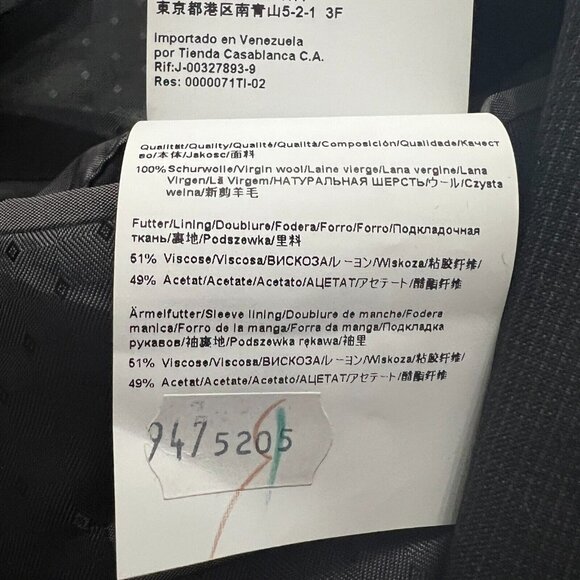 東京都港区南青山5-2-1 3F
Importado en Venezuela
por Tienda Casablanca C.A.
Rif:J-00327893-9
Res: 0000071TI-02
Qualität/Quality/Qualité/Qualità/Composición/Qualidade/Качест
во/本体/Jakosc/面料
100%Schurwolle/Virgin wool/Laine vierge/Lana vergine/Lana
Virgen/Lã Virgem/НАТУРАЛЬНАЯ ШЕРСТЬ/ウール/Czysta
welna/新剪羊毛
Futter/Lining/Doublure/Fodera/Forro/Forro/Подкладочная
ткань/裏地/Podszewka/里料
51% Viscose/Viscosa/ВИСКОЗА/レーヨン/Wiskoza/粘胶纤维/
49% Acetat/Acetate/Acetato/АЦЕТАТ/アセテート/醋酯纤维
Ärmelfutter/Sleeve lining/Doublure de manche/Fodera
manica/Forro de la manga/Forra da manga/Подкладка
рукавов/袖裏地/Podszewka rękawa/袖里
51% Viscose/Viscosa/ВИСКОЗА/レーヨン/Wiskoza/粘胶纤维/
49% Acetat/Acetate/Acetato/АЦЕТАТ/アセテート/醋酯纤维
9475205